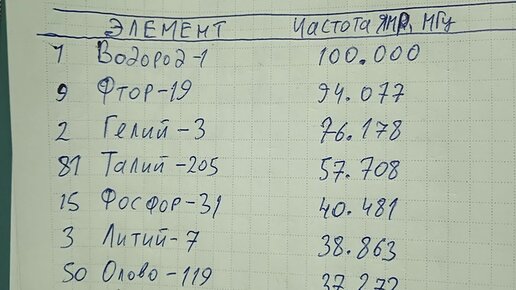 ЭЛЕМЕНТ Частота ЯМР, МГц
1 Водород-1 100.000
9 Фтор-19 94.077
2 Гелий-3 76.178
81 Талий-205 57.708
15 Фосфор-31 40.481
3 Литий-7 38.863
50 Олово-119 37.272